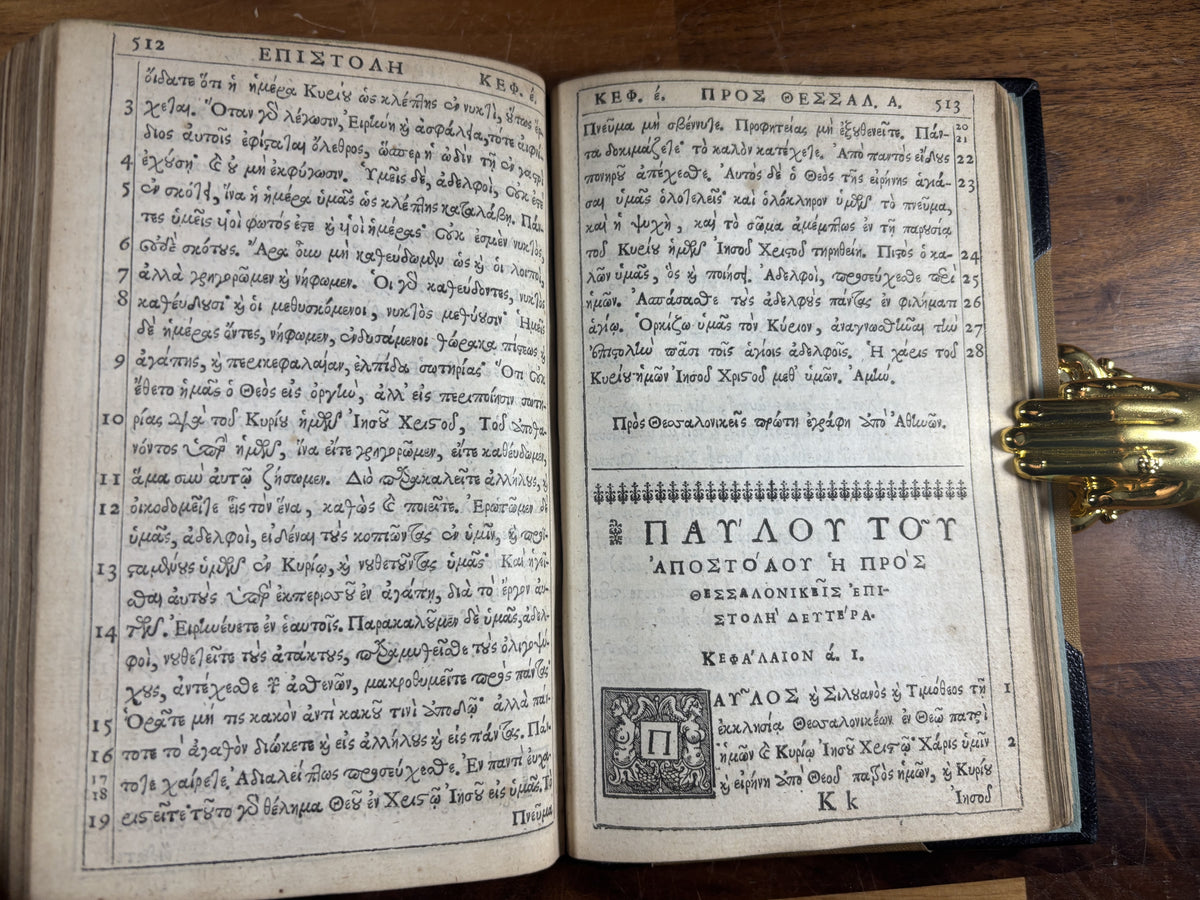 512
ΕΠΙΣΤΟΛΗ
ΚΕΦ. έ.
οἴδατε ὅτι ἡ ἡμέρα Κυρίου ὡς κλέπτης ἐν νυκτὶ, οὕτως ἔρ-
3 χεται. Ὅταν γὸ λέγωσιν, Εἰρήνη κὶ ἀσφάλεια, τότε αἰφνί-
διος αὐτοῖς ἐφίσταται ὄλεθρος, ὥσπερ ἡ ὠδὶν τῇ ἐν γαστρὶ
4 ἐχούσῃ· καὶ οὐ μὴ ἐκφύγωσιν. Ὑμεῖς δὲ, ἀδελφοὶ, οὐκ ἐστὲ
5 ἐν σκότει, ἵνα ἡ ἡμέρα ὑμᾶς ὡς κλέπτης καταλάβῃ. Πάν-
τες ὑμεῖς υἱοὶ φωτός ἐστε κὶ υἱοὶ ἡμέρας· οὐκ ἐσμὲν νυκτὸς,
6 οὐδὲ σκότους. Ἄρα οὖν μὴ καθεύδωμεν ὡς κὶ οἱ λοιποὶ,
7 ἀλλὰ γρηγορῶμεν κὶ νήφωμεν. Οἱ γὸ καθεύδοντες, νυκτὸς
8 καθεύδουσι· κὶ οἱ μεθυσκόμενοι, νυκτὸς μεθύουσιν· Ἡμεῖς
δὲ ἡμέρας ὄντες, νήφωμεν, ἐνδυσάμενοι θώρακα πίστεως κὶ
9 ἀγάπης, κὶ περικεφαλαίαν, ἐλπίδα σωτηρίας· Ὅτι οὐκ
ἔθετο ἡμᾶς ὁ Θεὸς εἰς ὀργὴν, ἀλλ' εἰς περιποίησιν σωτη-
10 ρίας διὰ τοῦ Κυρίου ἡμῶν Ἰησοῦ Χριστοῦ, Τοῦ ἀποθα-
νόντος ὑπὲρ ἡμῶν, ἵνα εἴτε γρηγορῶμεν, εἴτε καθεύδωμεν,
11 ἅμα σὺν αὐτῷ ζήσωμεν. Διὸ παρακαλεῖτε ἀλλήλους, κὶ
12 οἰκοδομεῖτε εἷς τὸν ἕνα, καθὼς καὶ ποιεῖτε. Ἐρωτῶμεν δὲ
ὑμᾶς, ἀδελφοὶ, εἰδέναι τοὺς κοπιῶντας ἐν ὑμῖν, κὶ προϊ-
13 σταμένους ὑμῶν ἐν Κυρίῳ, κὶ νουθετοῦντας ὑμᾶς· Καὶ ἡγεῖ-
σθαι αὐτοὺς ὑπὲρ ἐκπερισσοῦ ἐν ἀγάπῃ, διὰ τὸ ἔργον αὐ-
14 τῶν. Εἰρηνεύετε ἐν ἑαυτοῖς. Παρακαλοῦμεν δὲ ὑμᾶς, ἀδελ-
φοὶ, νουθετεῖτε τοὺς ἀτάκτους, παραμυθεῖσθε τοὺς ὀλιγοψύ-
χους, ἀντέχεσθε τῶν ἀσθενῶν, μακροθυμεῖτε πρὸς πάντας·
15 Ὁρᾶτε μή τις κακὸν ἀντὶ κακοῦ τινὶ ἀποδῷ· ἀλλὰ πάν-
16 τοτε τὸ ἀγαθὸν διώκετε κὶ εἰς ἀλλήλους κὶ εἰς πάντας. Πάν-
17 18 τοτε χαίρετε. Ἀδιαλείπτως προσεύχεσθε. Ἐν παντὶ εὐχα-
19 ριστεῖτε· τοῦτο γὸ θέλημα Θεοῦ ἐν Χριστῷ Ἰησοῦ εἰς ὑμᾶς. Τὸ
Πνεῦμα
ΚΕΦ. έ. ΠΡΟΣ ΘΕΣΣΑΛ. Α. 513
Πνεῦμα μὴ σβέννυτε. Προφητείας μὴ ἐξουθενεῖτε. Πάν- 20 21
τα δοκιμάζετε· τὸ καλὸν κατέχετε. Ἀπὸ παντὸς εἴδους 22
πονηροῦ ἀπέχεσθε. Αὐτὸς δὲ ὁ Θεὸς τῆς εἰρήνης ἁγιά- 23
σαι ὑμᾶς ὁλοτελεῖς· καὶ ὁλόκληρον ὑμῶν τὸ πνεῦμα,
καὶ ἡ ψυχὴ, καὶ τὸ σῶμα ἀμέμπτως ἐν τῇ παρουσίᾳ
τοῦ Κυρίου ἡμῶν Ἰησοῦ Χριστοῦ τηρηθείη. Πιστὸς ὁ κα- 24
λῶν ὑμᾶς, ὃς κὶ ποιήσει. Ἀδελφοὶ, προσεύχεσθε περὶ 25
ἡμῶν. Ἀσπάσασθε τοὺς ἀδελφοὺς πάντας ἐν φιλήματι 26
ἁγίῳ. Ὁρκίζω ὑμᾶς τὸν Κύριον, ἀναγνωσθῆναι τὴν 27
ἐπιστολὴν πᾶσι τοῖς ἁγίοις ἀδελφοῖς. Ἡ χάρις τοῦ 28
Κυρίου ἡμῶν Ἰησοῦ Χριστοῦ μεθ' ὑμῶν. Ἀμήν.
Πρὸς Θεσσαλονικεῖς πρώτη ἐγράφη ἀπὸ Ἀθηνῶν.
ΠΑΥ͂ΛΟΥ ΤΟΥ͂
ἈΠΟΣΤΌΛΟΥ Ἡ ΠΡῸΣ
ΘΕΣΣΑΛΟΝΙΚΕΙ͂Σ ἘΠΙ-
ΣΤΟΛῊ ΔΕΥΤΈΡΑ.
ΚΕΦΆΛΑΙΟΝ ά. I.
ΠΑΥ͂ΛΟΣ κὶ Σιλουανὸς κὶ Τιμόθεος τῇ 1
ἐκκλησίᾳ Θεσσαλονικέων ἐν Θεῷ πατρὶ
ἡμῶν καὶ Κυρίῳ Ἰησοῦ Χριστῷ· Χάρις ὑμῖν 2
κὶ εἰρήνη ἀπὸ Θεοῦ πατρὸς ἡμῶν, κὶ Κυρίου
K k Ἰησοῦ